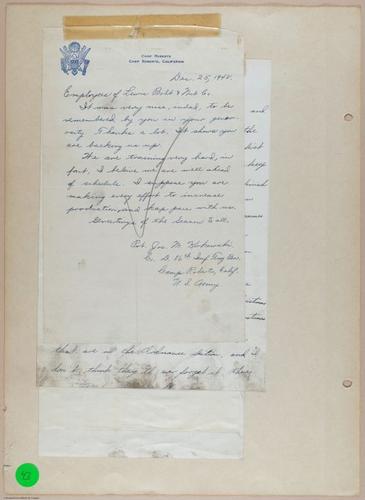 CAMP ROBERTS
CAMP ROBERTS, CALIFORNIA
Dec. 25, 1942.
Employees of Lewis Bolt & Nut Co.
It was very nice, indeed, to be
remembered by you in your gener-
osity. Thanks a lot. It shows you
are backing us up.
We are training very hard, in
fact, I believe we are well ahead
of schedule. I suppose you are
making every effort to increase
production and keep pace with us.
Greetings of the Season to all.
Pvt. Jos. M.
Co. D. 86th Inf. Trng. Bn.
Camp Roberts, Calif.
U. S. Army
and
the
keep
that are in the Ordnance section, and I
don't think they'll ever forget it they
43